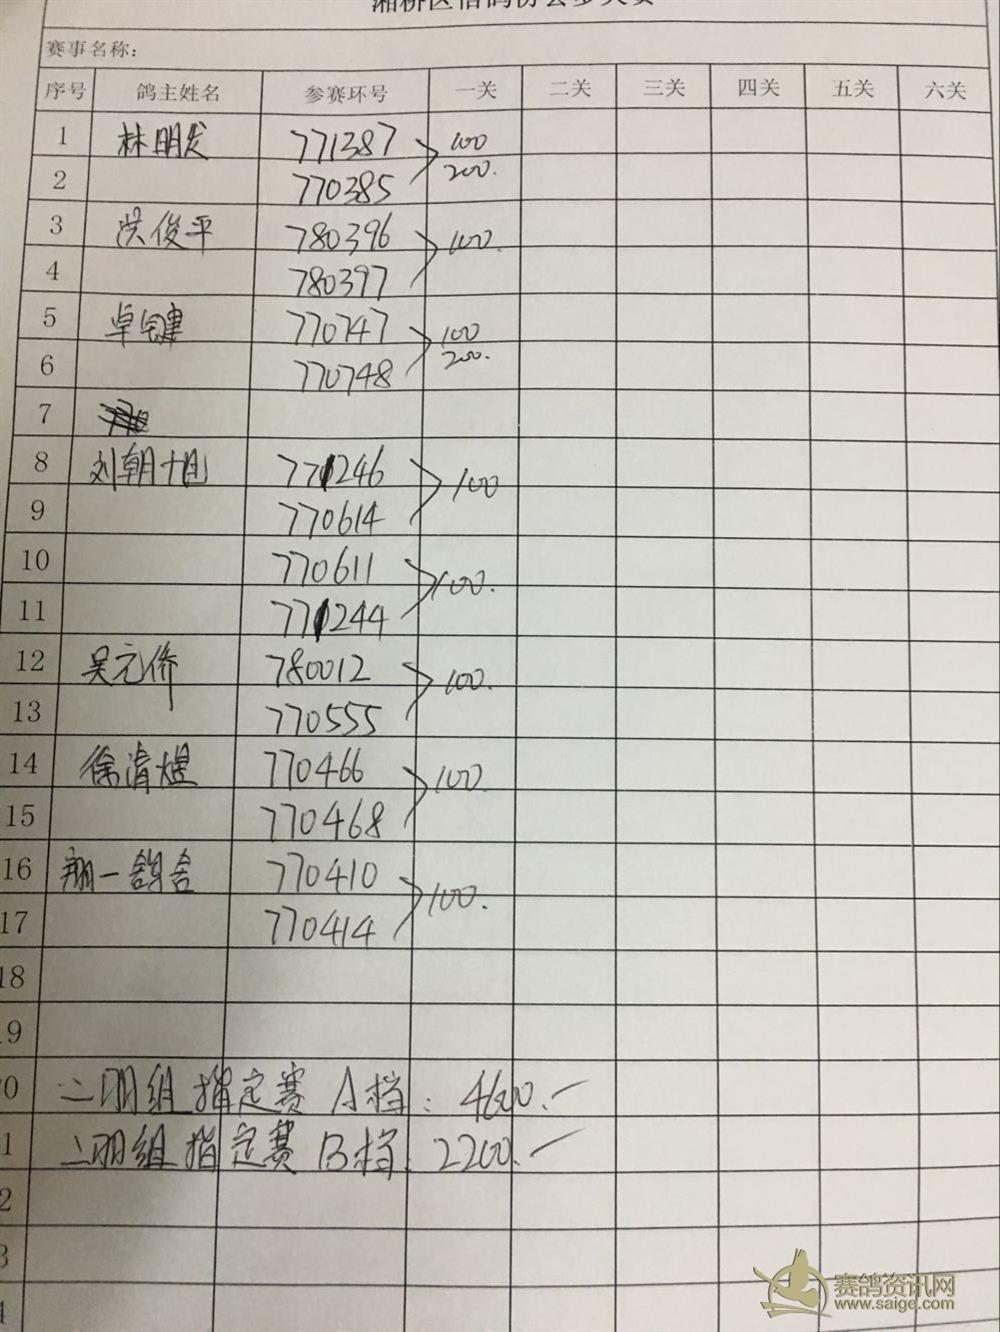 湘桥区信鸽协会多关赛
赛事名称：
序号 鸽主姓名 参赛环号 一关 二关 三关 四关 五关 六关
1 林明发 771387 100
2 770385 200.
3 洪俊平 780396 100.
4 780397
5 770747 100
6 770748 200.
7
8 刘朝 771246 100
9 770614
10 770611 100.
11 771244
12 吴元侨 780012 100.
13 770555
14 徐清煜 770466 100.
15 770468
16 翔一鸽舍 770410 100.
17 770414
18
19
0 二羽组指定赛 A档：4600.
1 二羽组指定赛 B档：2200.
2
3
4
赛鸽资讯网
www.saige.com